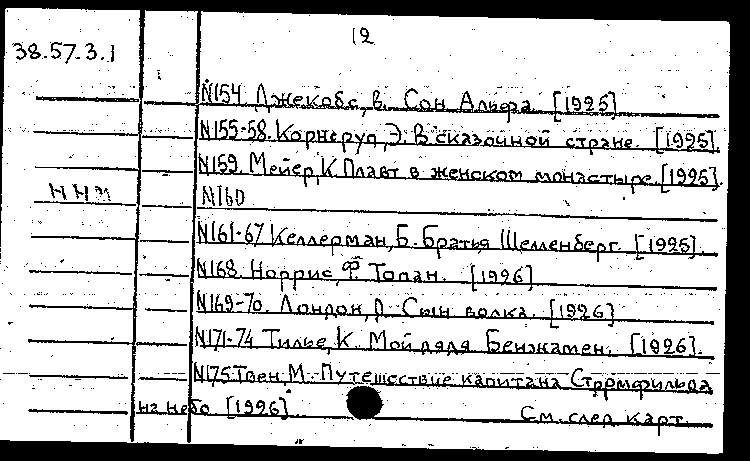 12
38.57.3.1
N154. Джекобс, В. Сон Альфа. [1925]
N155-58. Корнеруп, Э. В сказочной стране. [1925].
N159. Мейер, К. Плавт в женском монастыре. [1925].
ННМ N160
N161-67 Келлерман, Б. Братья Шелленберг. [1925].
N168. Норрис, Ф. Топан. [1926]
N169-70. Лондон, Д. Сын волка. [1926]
N171-74. Тилье, К. Мой дядя Бенжамен. [1926].
N175. Твен, М. Путешествие капитана Стормфильда
на небо. [1926]
См. след карт.